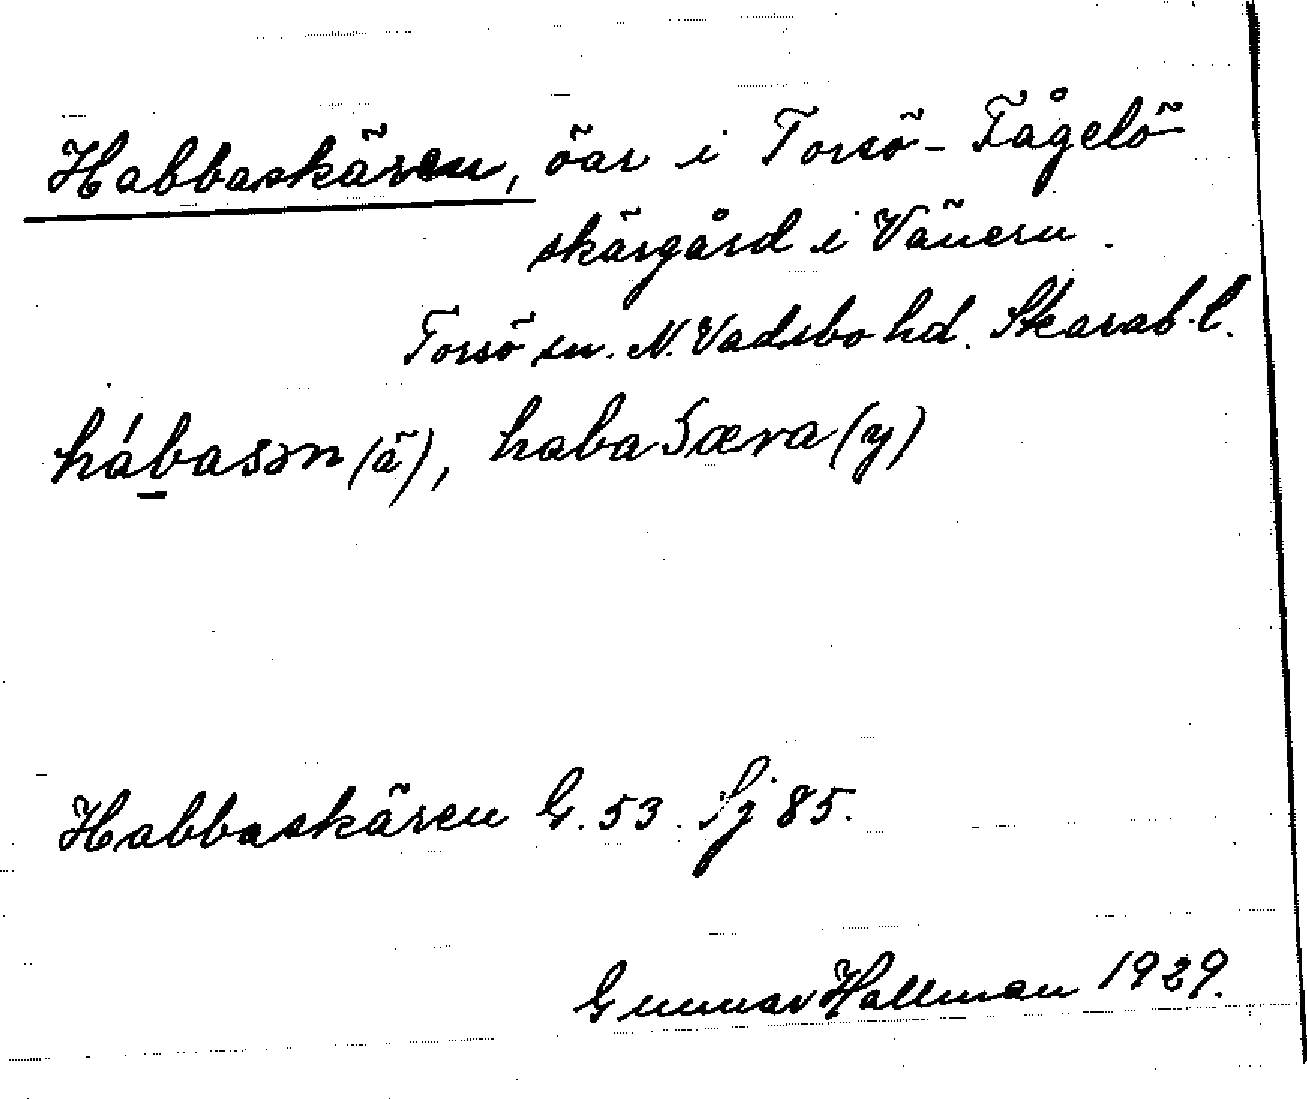 Habbaskären, öar i Torsö-Fågelö
skärgård i Vänern.
Torsö sn. N. Vadsbo hd. Skarab.l.
hábasən (ä), habaʃæra (y)
Habbaskären G. 53. Sj 85.
Gunnar Hallman 1929.